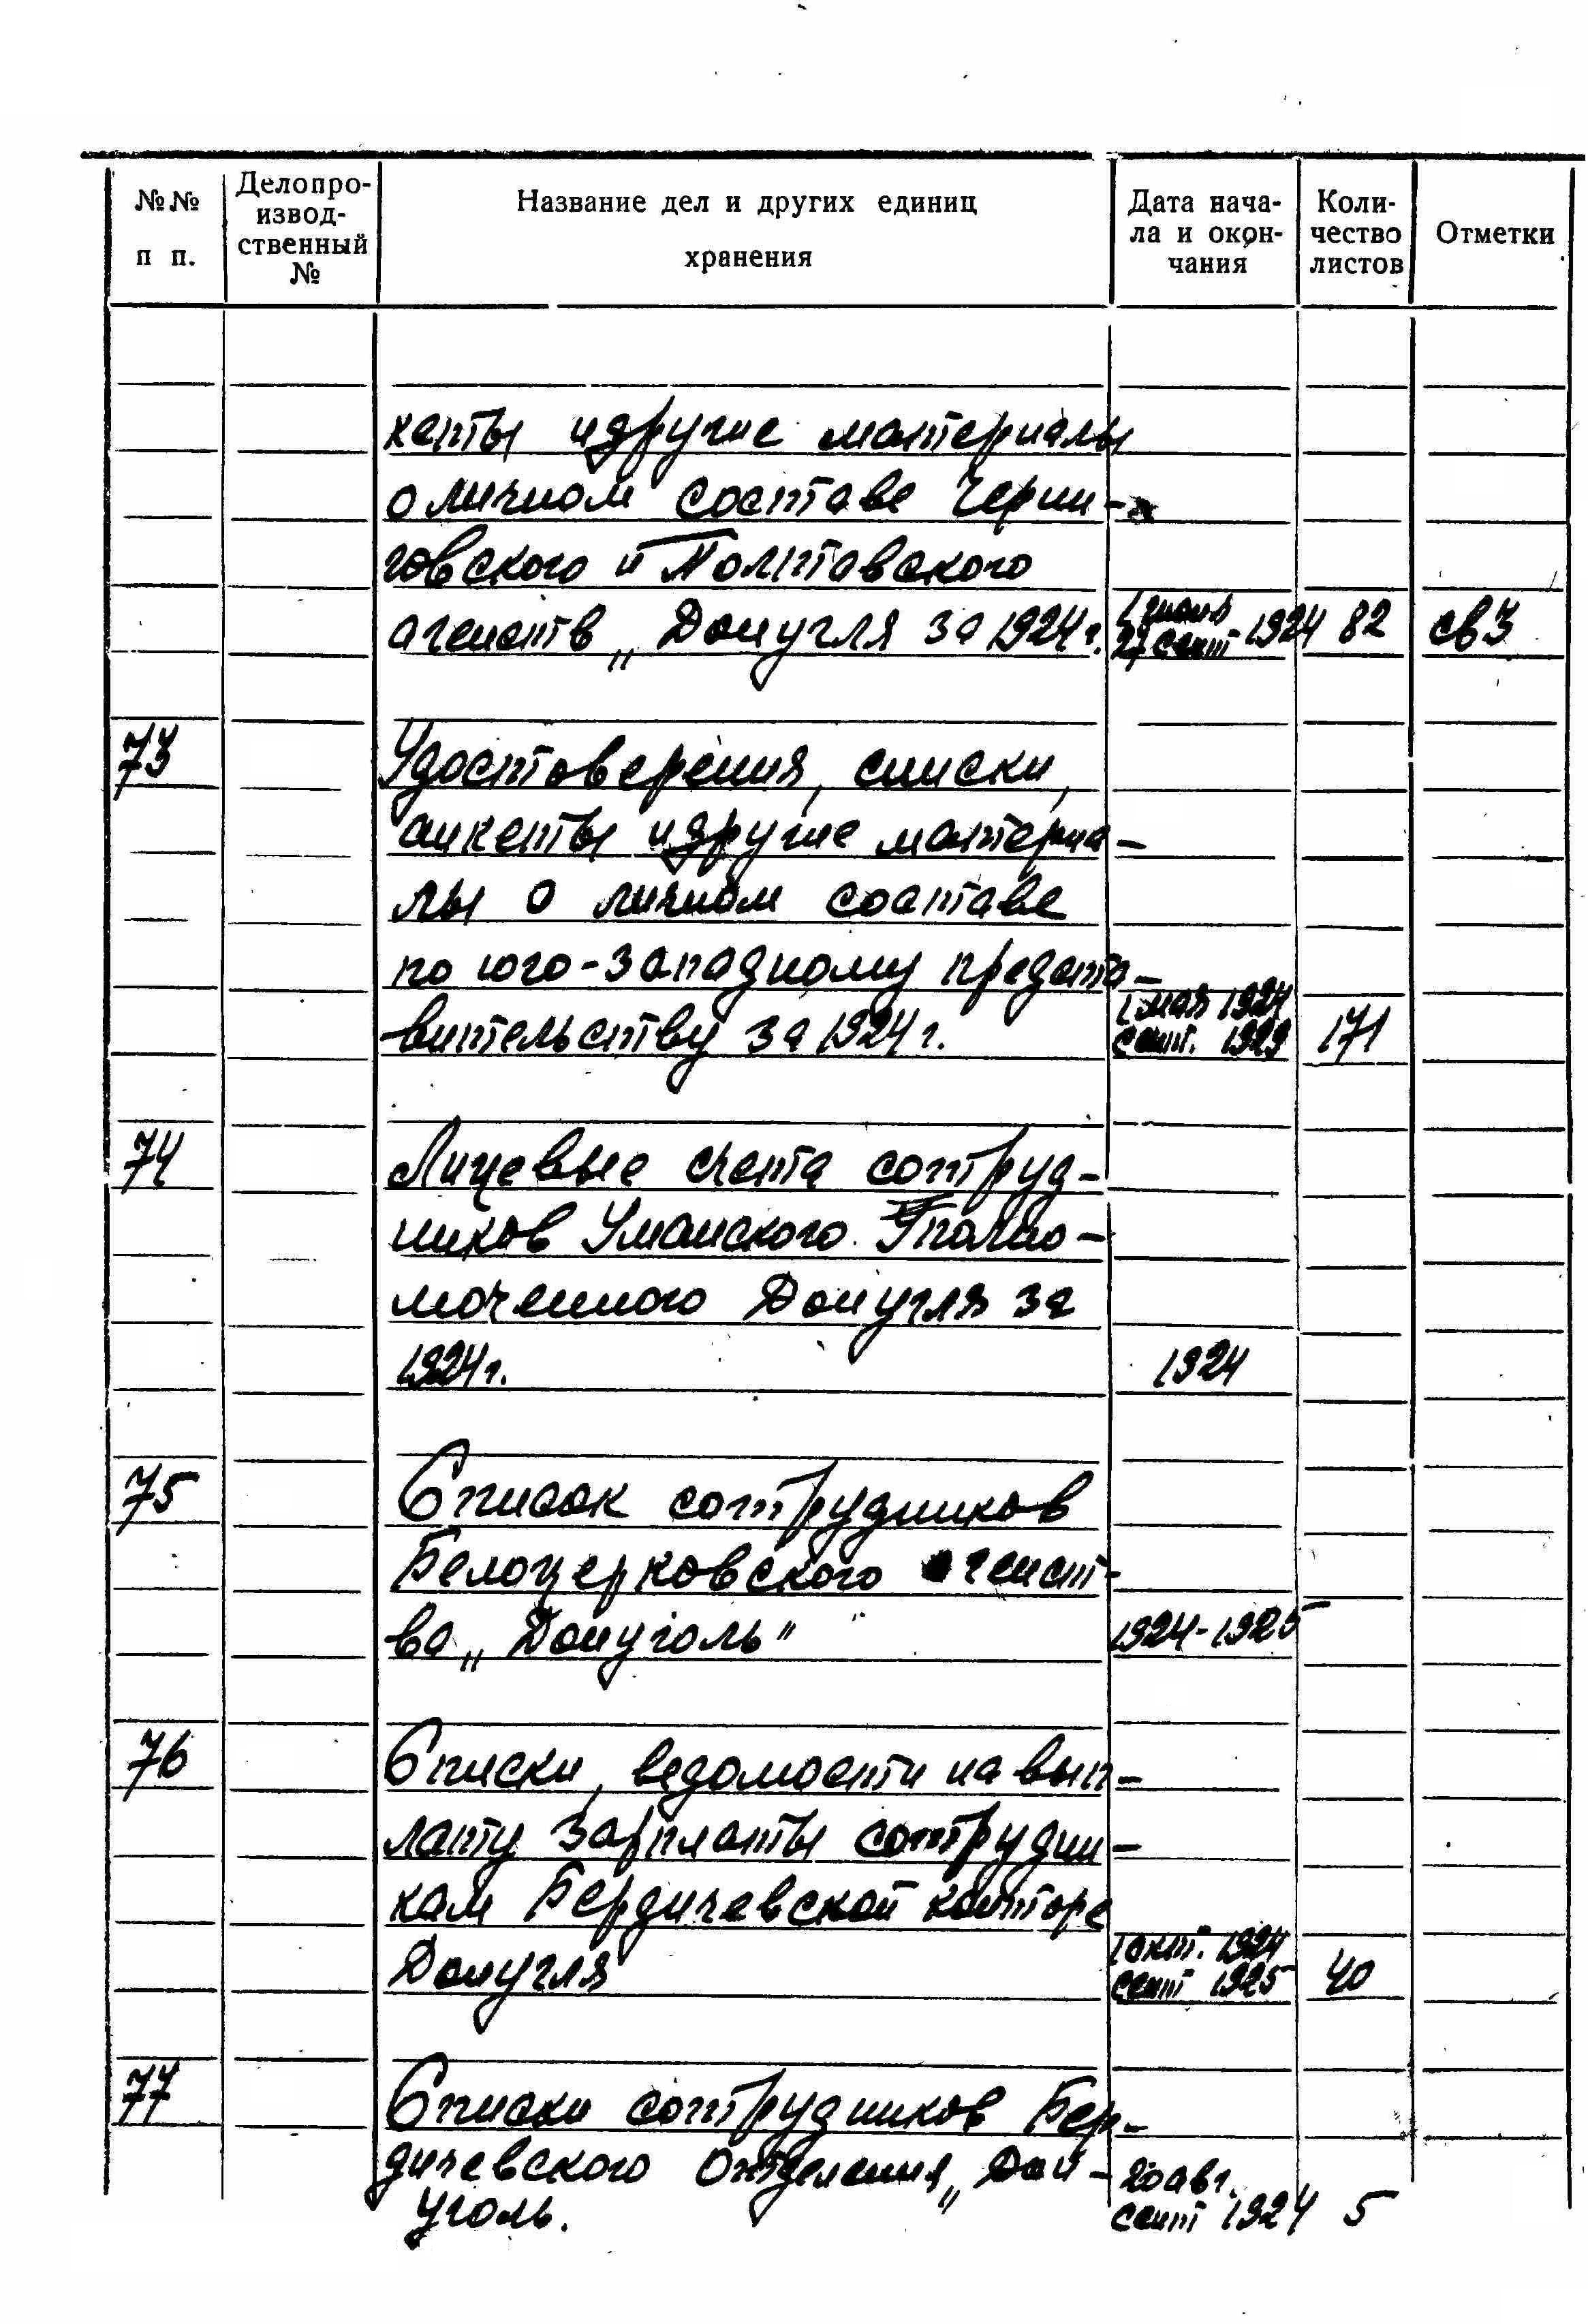 №№ п п.
Делопро-
извод-
ственный
№
Название дел и других единиц
хранения
Дата нача-
ла и окон-
чания
Коли-
чество
листов
Отметки
кеты и другие материалы
о личном составе Черни-
говского и Полтавского
агентств „Донугля за 1924 г. 1 июня 27 сент 1924 82 св 3
73 Удостоверения, списки,
анкеты и другие материа-
лы о личном составе
по юго-западному предста-
вительству за 1924 г. 1 мая 1924 сент. 1929 171
74 Лицевые счета сотруд-
ников Уманского Уполно-
моченного Донугля за
1924 г. 1924
75 Список сотрудников
Белоцерковского агентст-
ва „Донуголь" 1924-1925
76 Списки, ведомости на вып-
лату зарплаты сотрудни-
кам Бердичевской конторе
Донугля 1 окт. 1924 сент 1925 40
77 Списки сотрудников Бер-
дичевского Отделения „Дон-
уголь. 20 авг. сент 1924 5